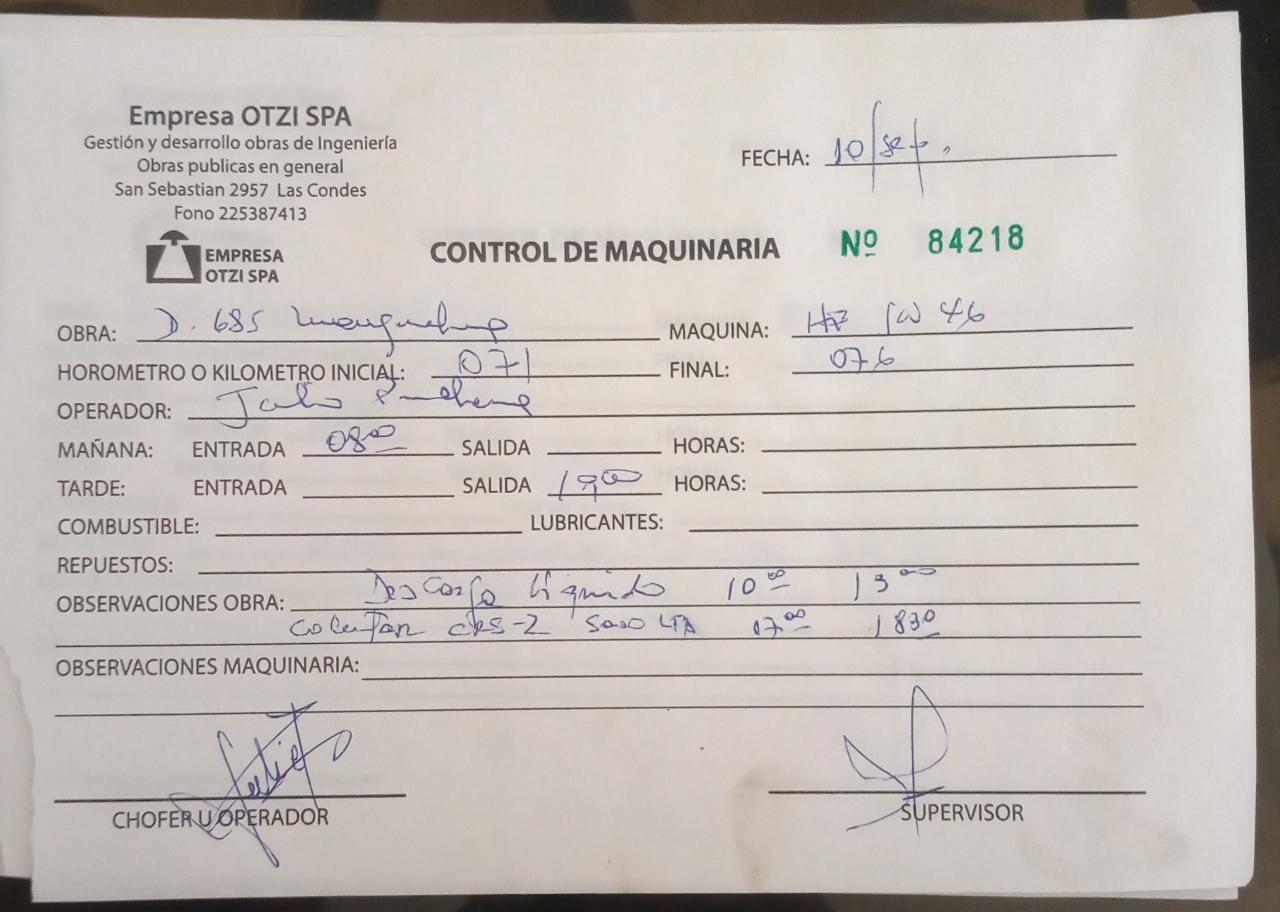 Empresa OTZI SPA
Gestión y desarrollo obras de Ingeniería
Obras publicas en general
San Sebastian 2957 Las Condes
Fono 225387413
EMPRESA
OTZI SPA
FECHA: 10/sep.
CONTROL DE MAQUINARIA Nº 84218
OBRA: D. 685 MAQUINA: 46
HOROMETRO O KILOMETRO INICIAL: 071 FINAL: 076
OPERADOR: Julio
MAÑANA: ENTRADA 0800 SALIDA HORAS:
TARDE: ENTRADA SALIDA 19,00 HORAS:
COMBUSTIBLE: LUBRICANTES:
REPUESTOS:
OBSERVACIONES OBRA: Descarga liquido 10 00 13 00
CRS-2 5000 LTA 17 00 1830
OBSERVACIONES MAQUINARIA:
CHOFER U OPERADOR SUPERVISOR